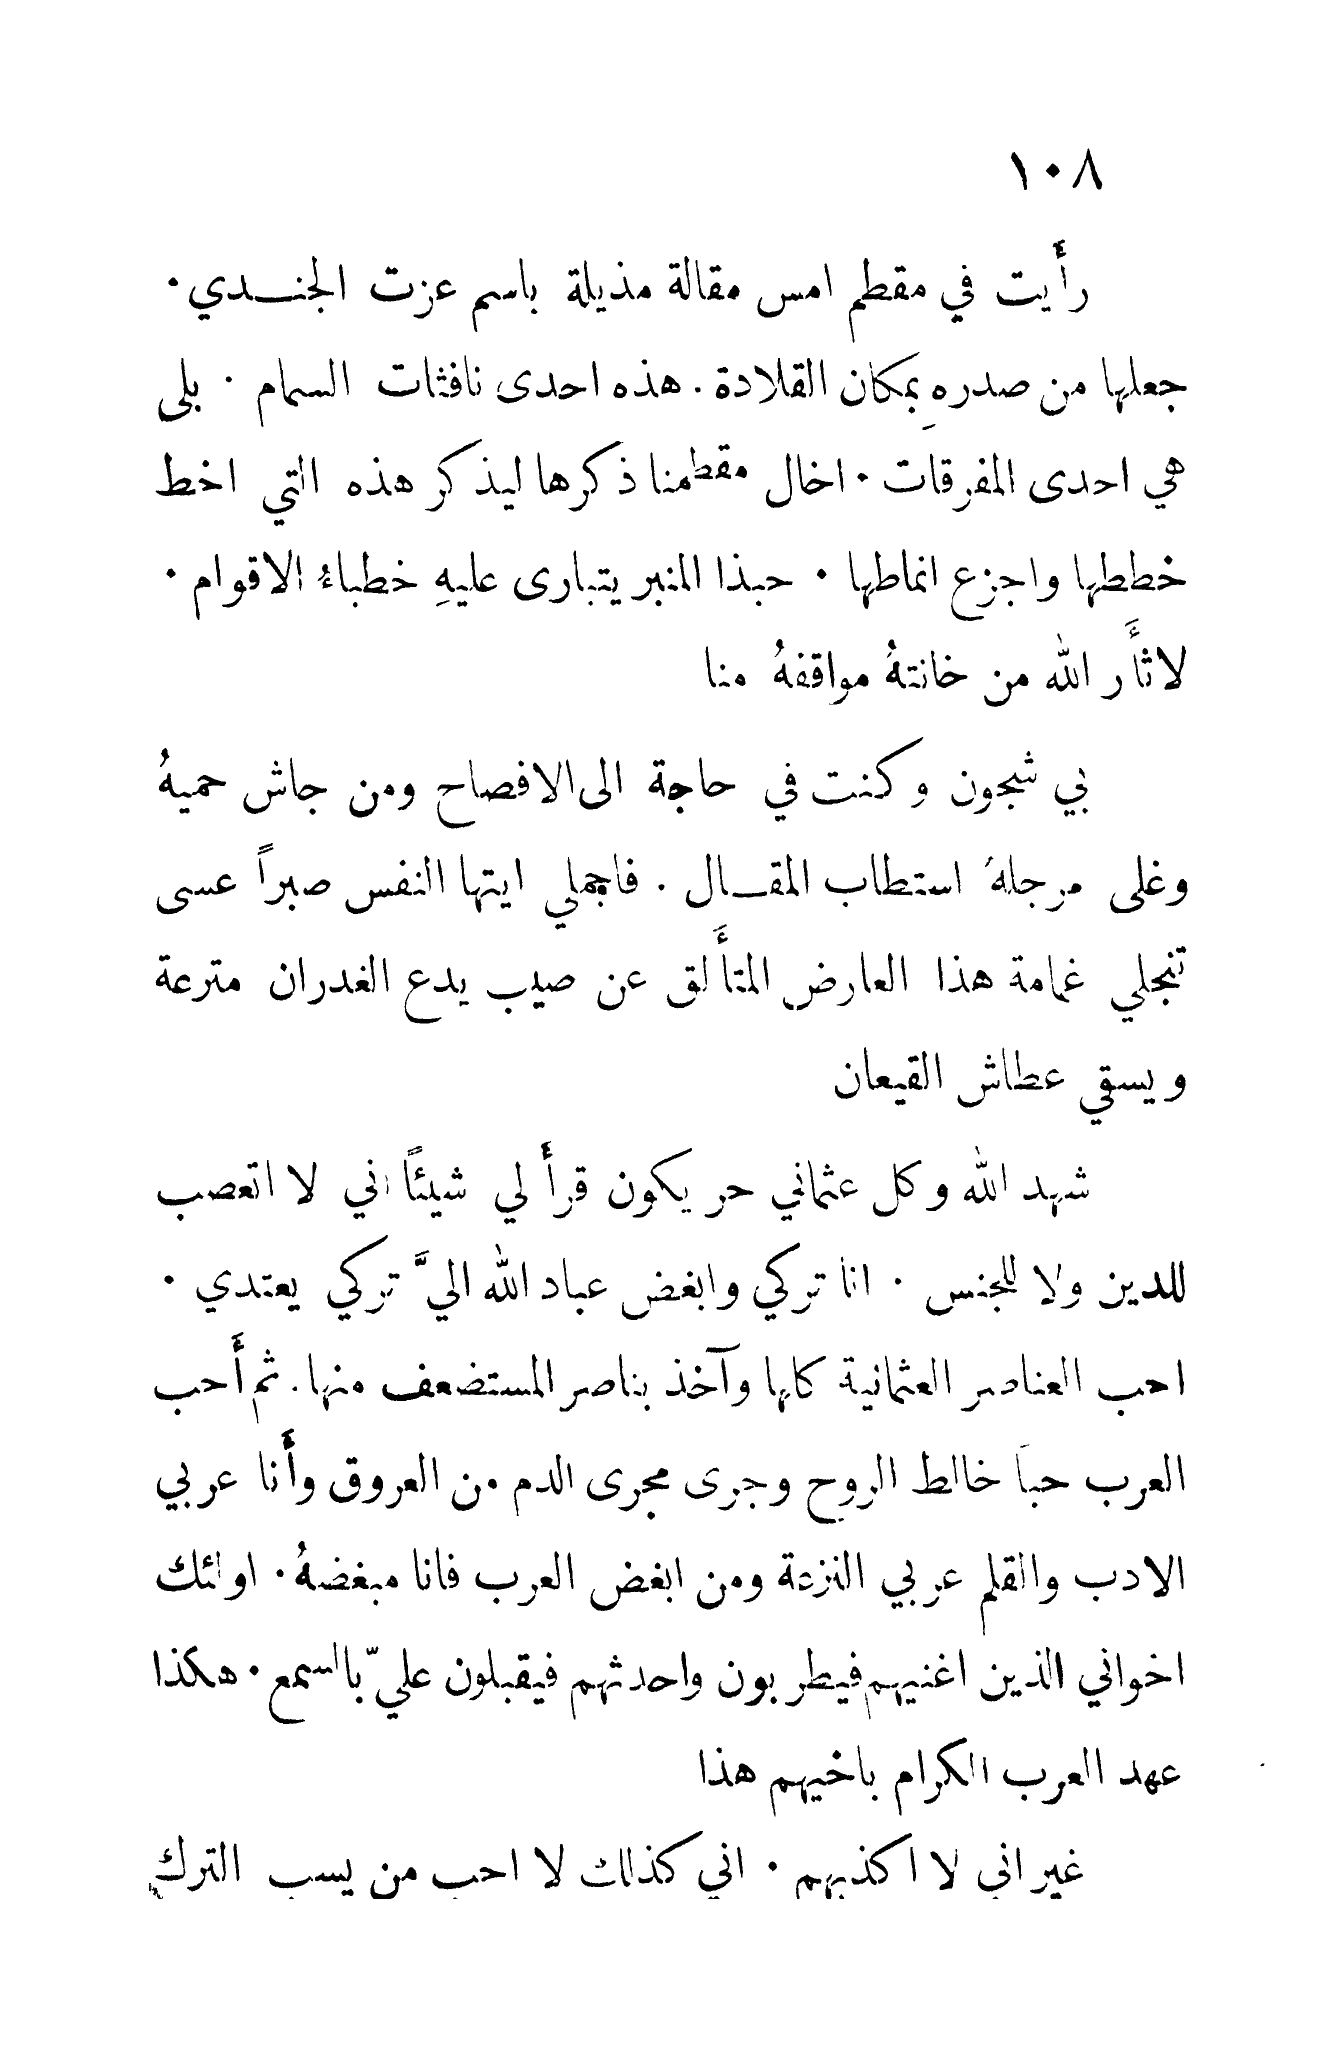 ١٠٨
رأَيت في مقطم امس مقالة مذيلة باسم عزت الجندي ٠
جعلها من صدره بمكان القلادة . هذه احدى نافثات السمام ٠ بلى
هي احدى المفرقات ٠ اخال مقطمنا ذكرها ليذكر هذه التي اخط
خططها واجزع انماطها ٠ حبذا المنبر يتبارى عليهِ خطباءُ الاقوام ٠
لاثأَر الله من خانتهُ مواقفهُ منا
بي شجون وكنت في حاجة الى الافصاح ومن جاش حميهُ
وغلى مرجلهُ استطاب المقال . فاجملي ايتها النفس صبراً عسى
تنجلي غمامة هذا العارض المتأَلق عن صيب يدع الغدران مترعة
ويسقي عطاش القيعان
شهد الله وكل عثماني حر يكون قرأَ لي شيئاً اني لا اتعصب
للدين ولا للجنس ٠ انا تركي وابغض عباد الله اليَّ تركي يعتدي ٠
احب العناصر العثمانية كلها وآخذ بناصر المستضعف منها . ثم أَحب
العرب حباً خالط الروح وجرى مجرى الدم من العروق وأَنا عربي
الادب والقلم عربي النزعة ومن ابغض العرب فانا مبغضهُ ٠ اولئك
اخواني الذين اغنيهم فيطربون واحدثهم فيقبلون عليّ بالسمع ٠ هكذا
عهد العرب الكرام باخيهم هذا
غير اني لا اكذبهم ٠ اني كذلك لا احب من يسب الترك